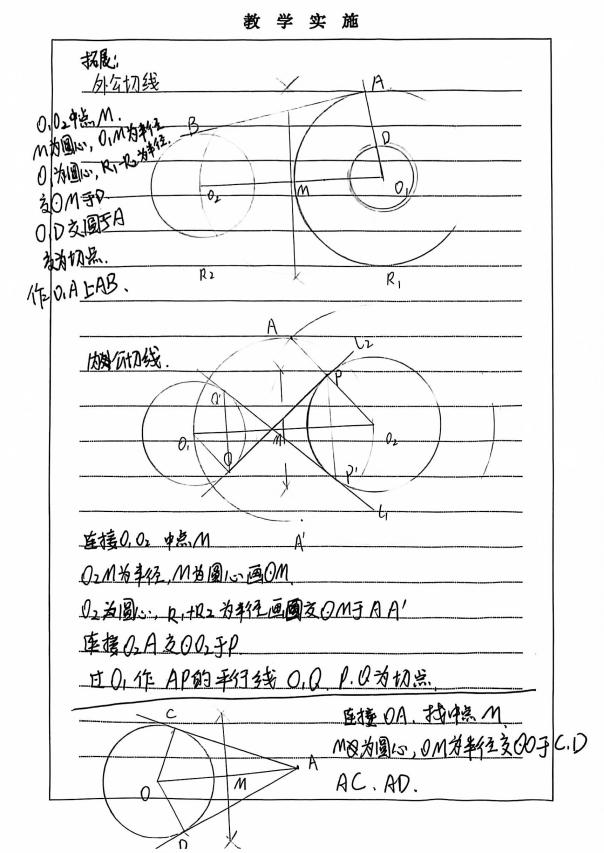 教学实施
拓展：
外公切线
O₁O₂中点M.
M为圆心，O₁M为半径
O₁为圆心，R₁-R₂为半径.
交⊙M于D
O₁D交圆于A
交为切点.
作O₁A⊥AB、
A
B
D
O₂
M
O₁
R₂
R₁
内公切线.
A
L₂
P
Q'
O₁
M
O₂
Q
P'
L₁
A'
连接O₁O₂ 中点M
O₂M为半径，M为圆心画⊙M.
O₂为圆心，R₁+R₂为半径画圆交⊙M于AA'
连接O₂A交⊙O₂于P.
过O₁作AP的平行线O₁Q. P.Q为切点.
连接OA. 找中点M.
M为圆心，OM为半径交⊙O于C.D
AC. AD.
C
O
M
A
D